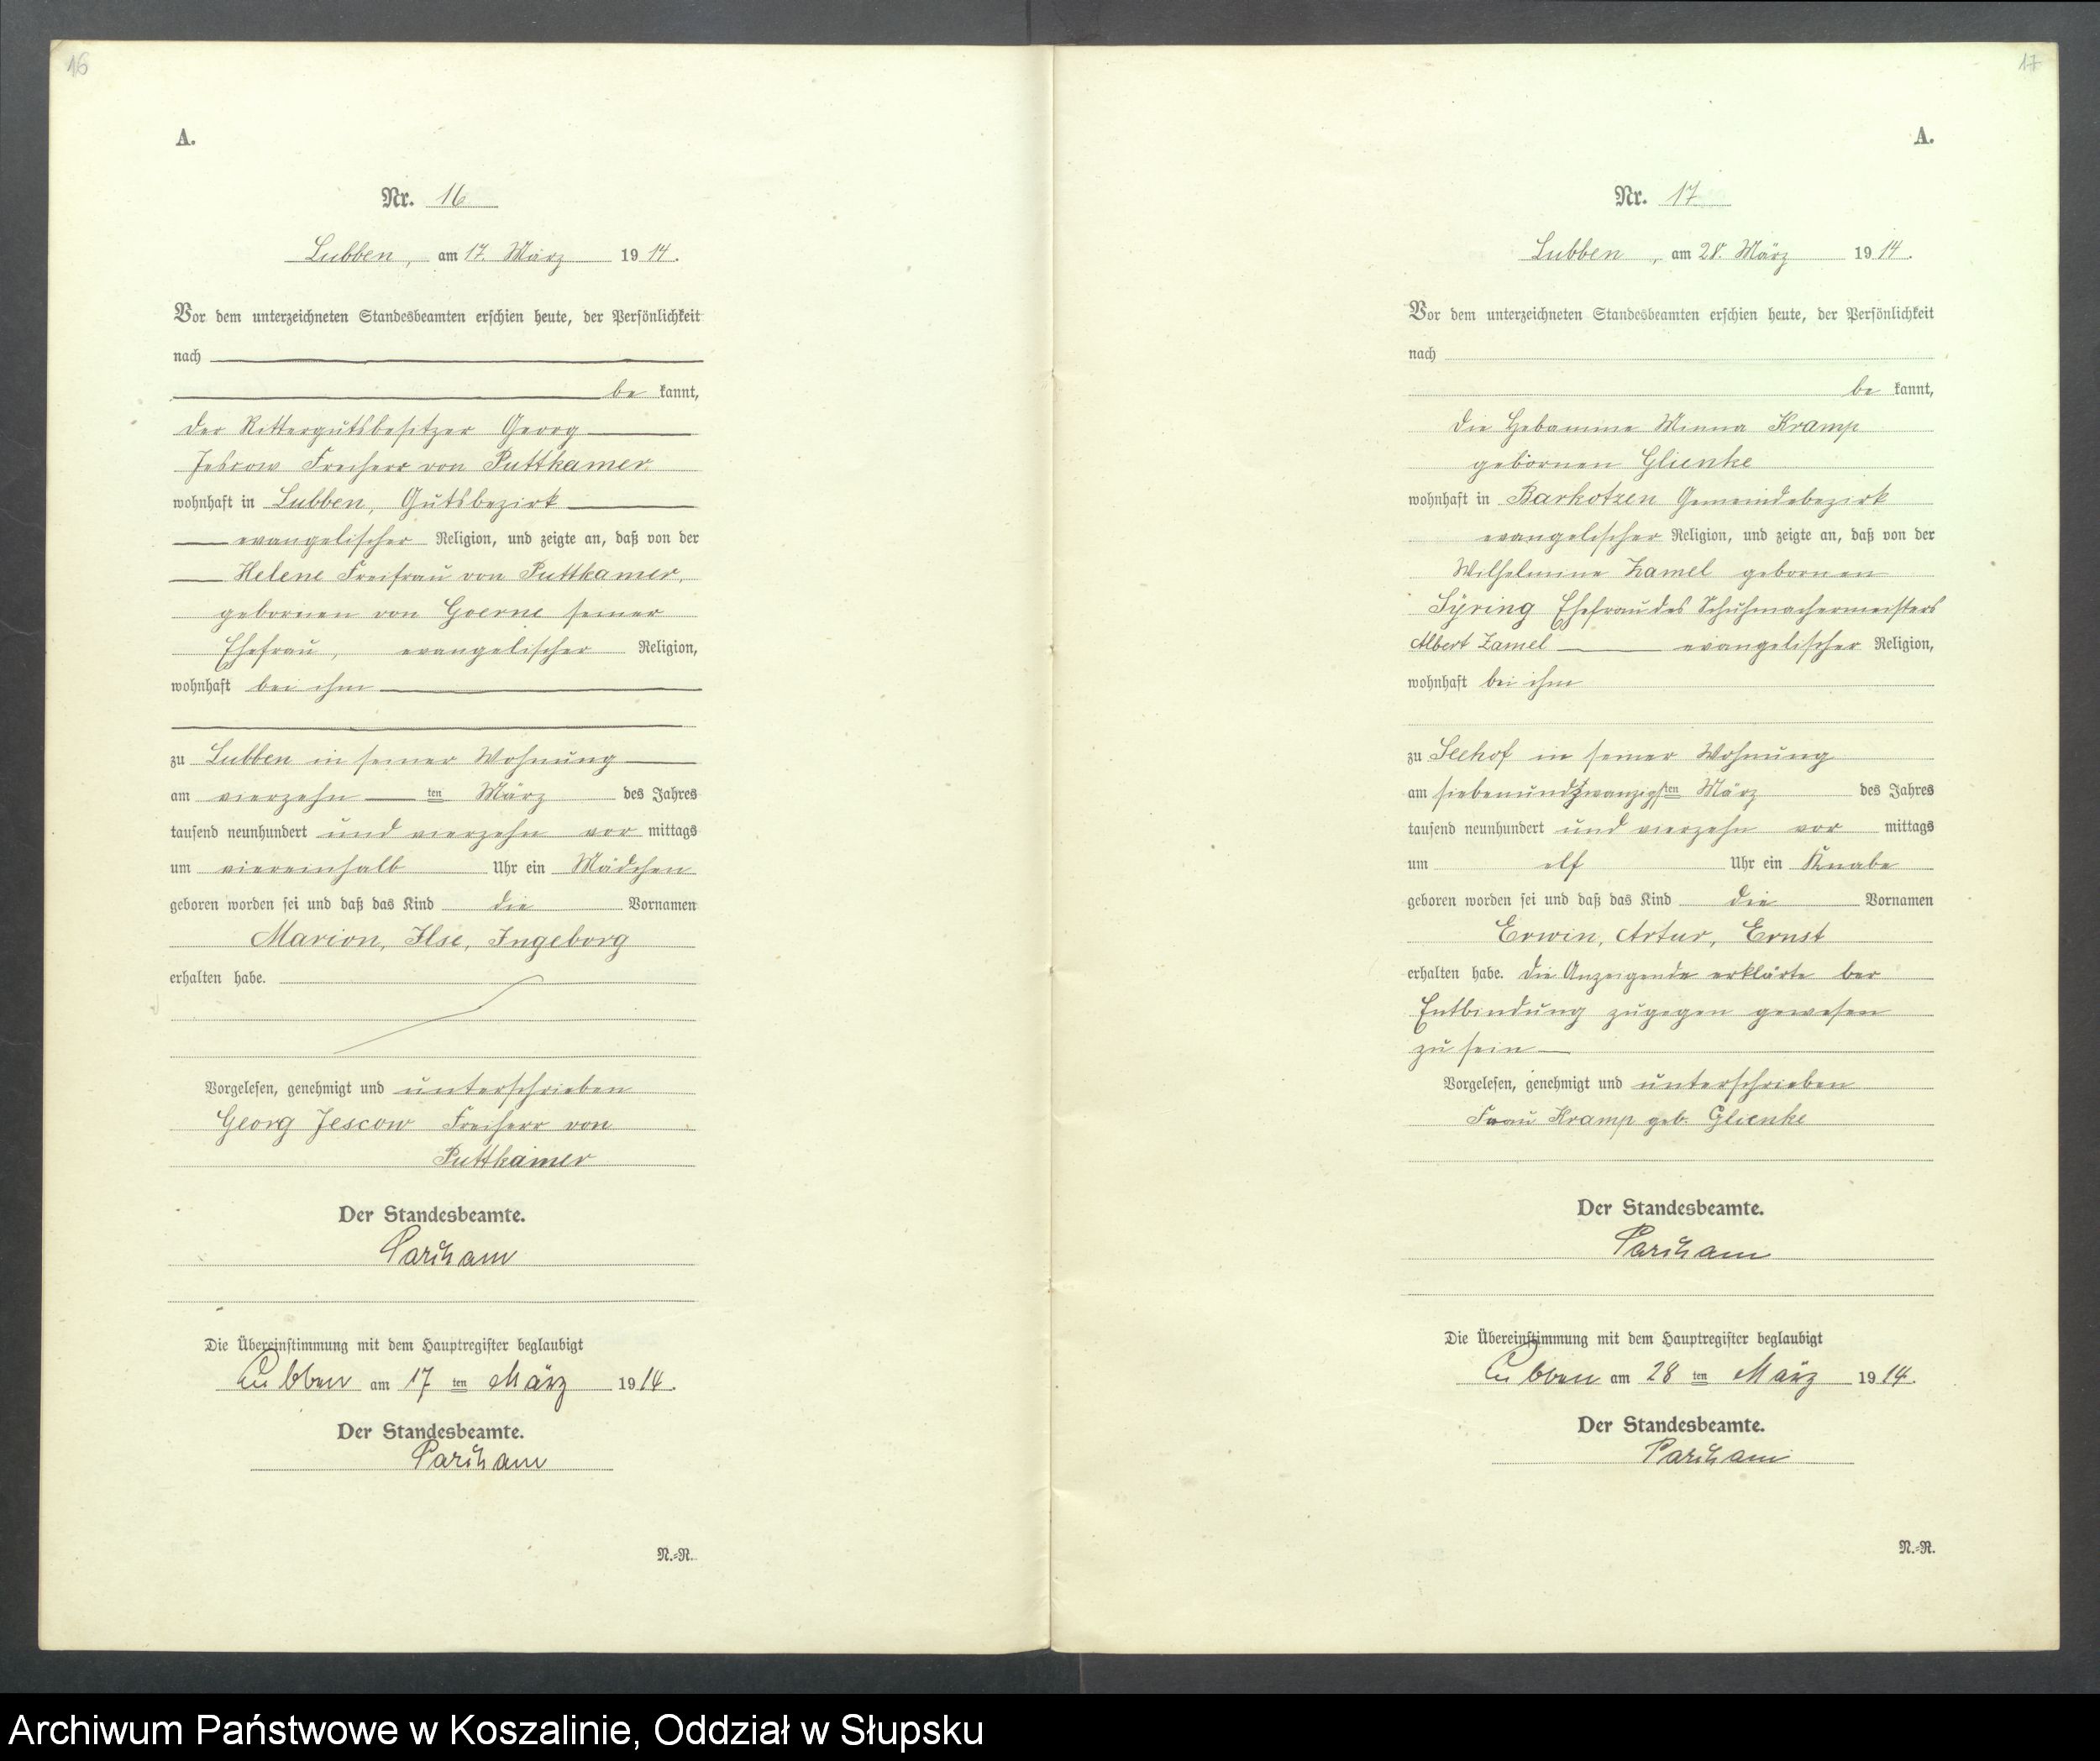 16
A.
Nr. 16
Lubben, am 17. März 1914.
Vor dem unterzeichneten Standesbeamten erschien heute, der Persönlichkeit
nach
be kannt,
der Rittergutsbesitzer Georg
Jescow Freiherr von Puttkamer
wohnhaft in Lubben, Gutsbezirk
evangelischer Religion, und zeigte an, daß von der
Helene Freifrau von Puttkamer,
gebornen von Goerne seiner
Ehefrau, evangelischer Religion,
wohnhaft bei ihm
zu Lubben in seiner Wohnung
am vierzehn ten März des Jahres
tausend neunhundert und vierzehn vor mittags
um viereinhalb Uhr ein Mädchen
geboren worden sei und daß das Kind die Vornamen
Marion, Ilse, Ingeborg
erhalten habe.
Vorgelesen, genehmigt und unterschrieben
Georg Jescow Freiherr von
Puttkamer
Der Standesbeamte.
Die Übereinstimmung mit dem Hauptregister beglaubigt
Lubben am 17 ten März 1914.
Der Standesbeamte.
N.=R.
17
A.
Nr. 17
Lubben, am 28. März 1914.
Vor dem unterzeichneten Standesbeamten erschien heute, der Persönlichkeit
nach
be kannt,
die Hebamme Minna Kramp
gebornen Glienke
wohnhaft in Barkotzen Gemeindebezirk
evangelischer Religion, und zeigte an, daß von der
Wilhelmine Zamel gebornen
Syring Ehefrau des Schuhmachermeisters
Albert Zamel evangelischer Religion,
wohnhaft bei ihm
zu Seehof in seiner Wohnung
am siebenundzwanzigsten März des Jahres
tausend neunhundert und vierzehn vor mittags
um elf Uhr ein Knabe
geboren worden sei und daß das Kind die Vornamen
Erwin, Artur, Ernst
erhalten habe. Die Anzeigende erklärte bei
Entbindung zugegen gewesen
zu sein
Vorgelesen, genehmigt und unterschrieben
Frau Kramp geb. Glienke
Der Standesbeamte.
Die Übereinstimmung mit dem Hauptregister beglaubigt
Lubben am 28 ten März 1914.
Der Standesbeamte.
N.=R.
Archiwum Państwowe w Koszalinie, Oddział w Słupsku